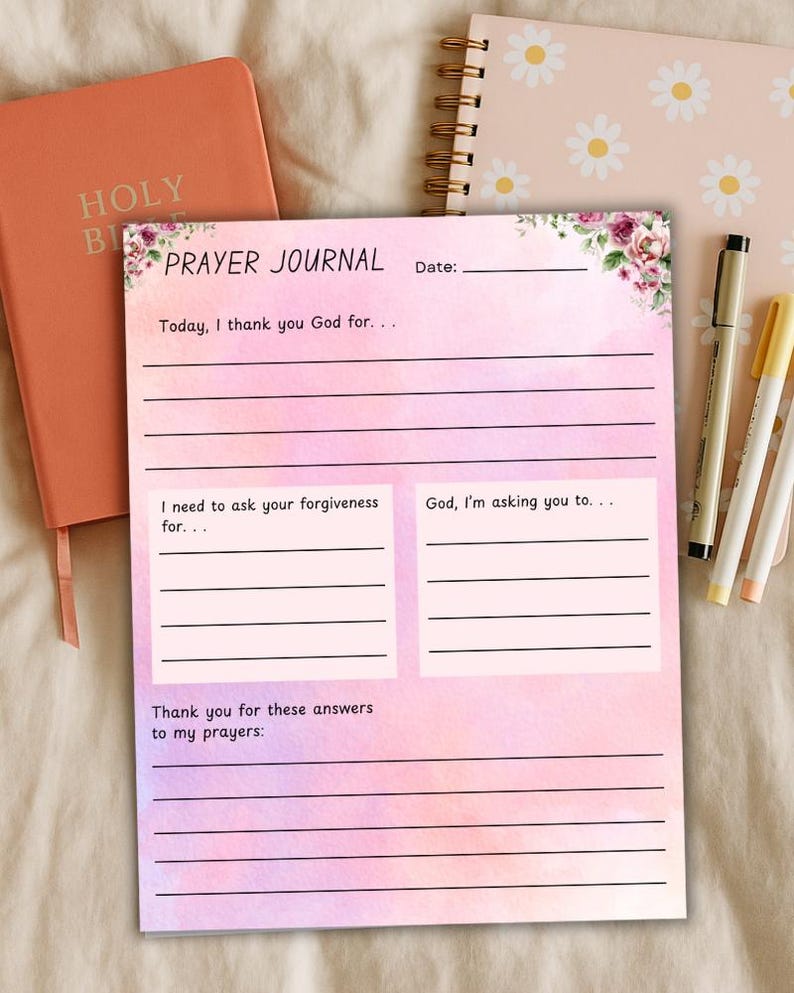 HOLY
BIBLE
PRAYER JOURNAL
Date:
Today, I thank you God for. . .
I need to ask your forgiveness
for. . .
God, I'm asking you to. . .
Thank you for these answers
to my prayers: